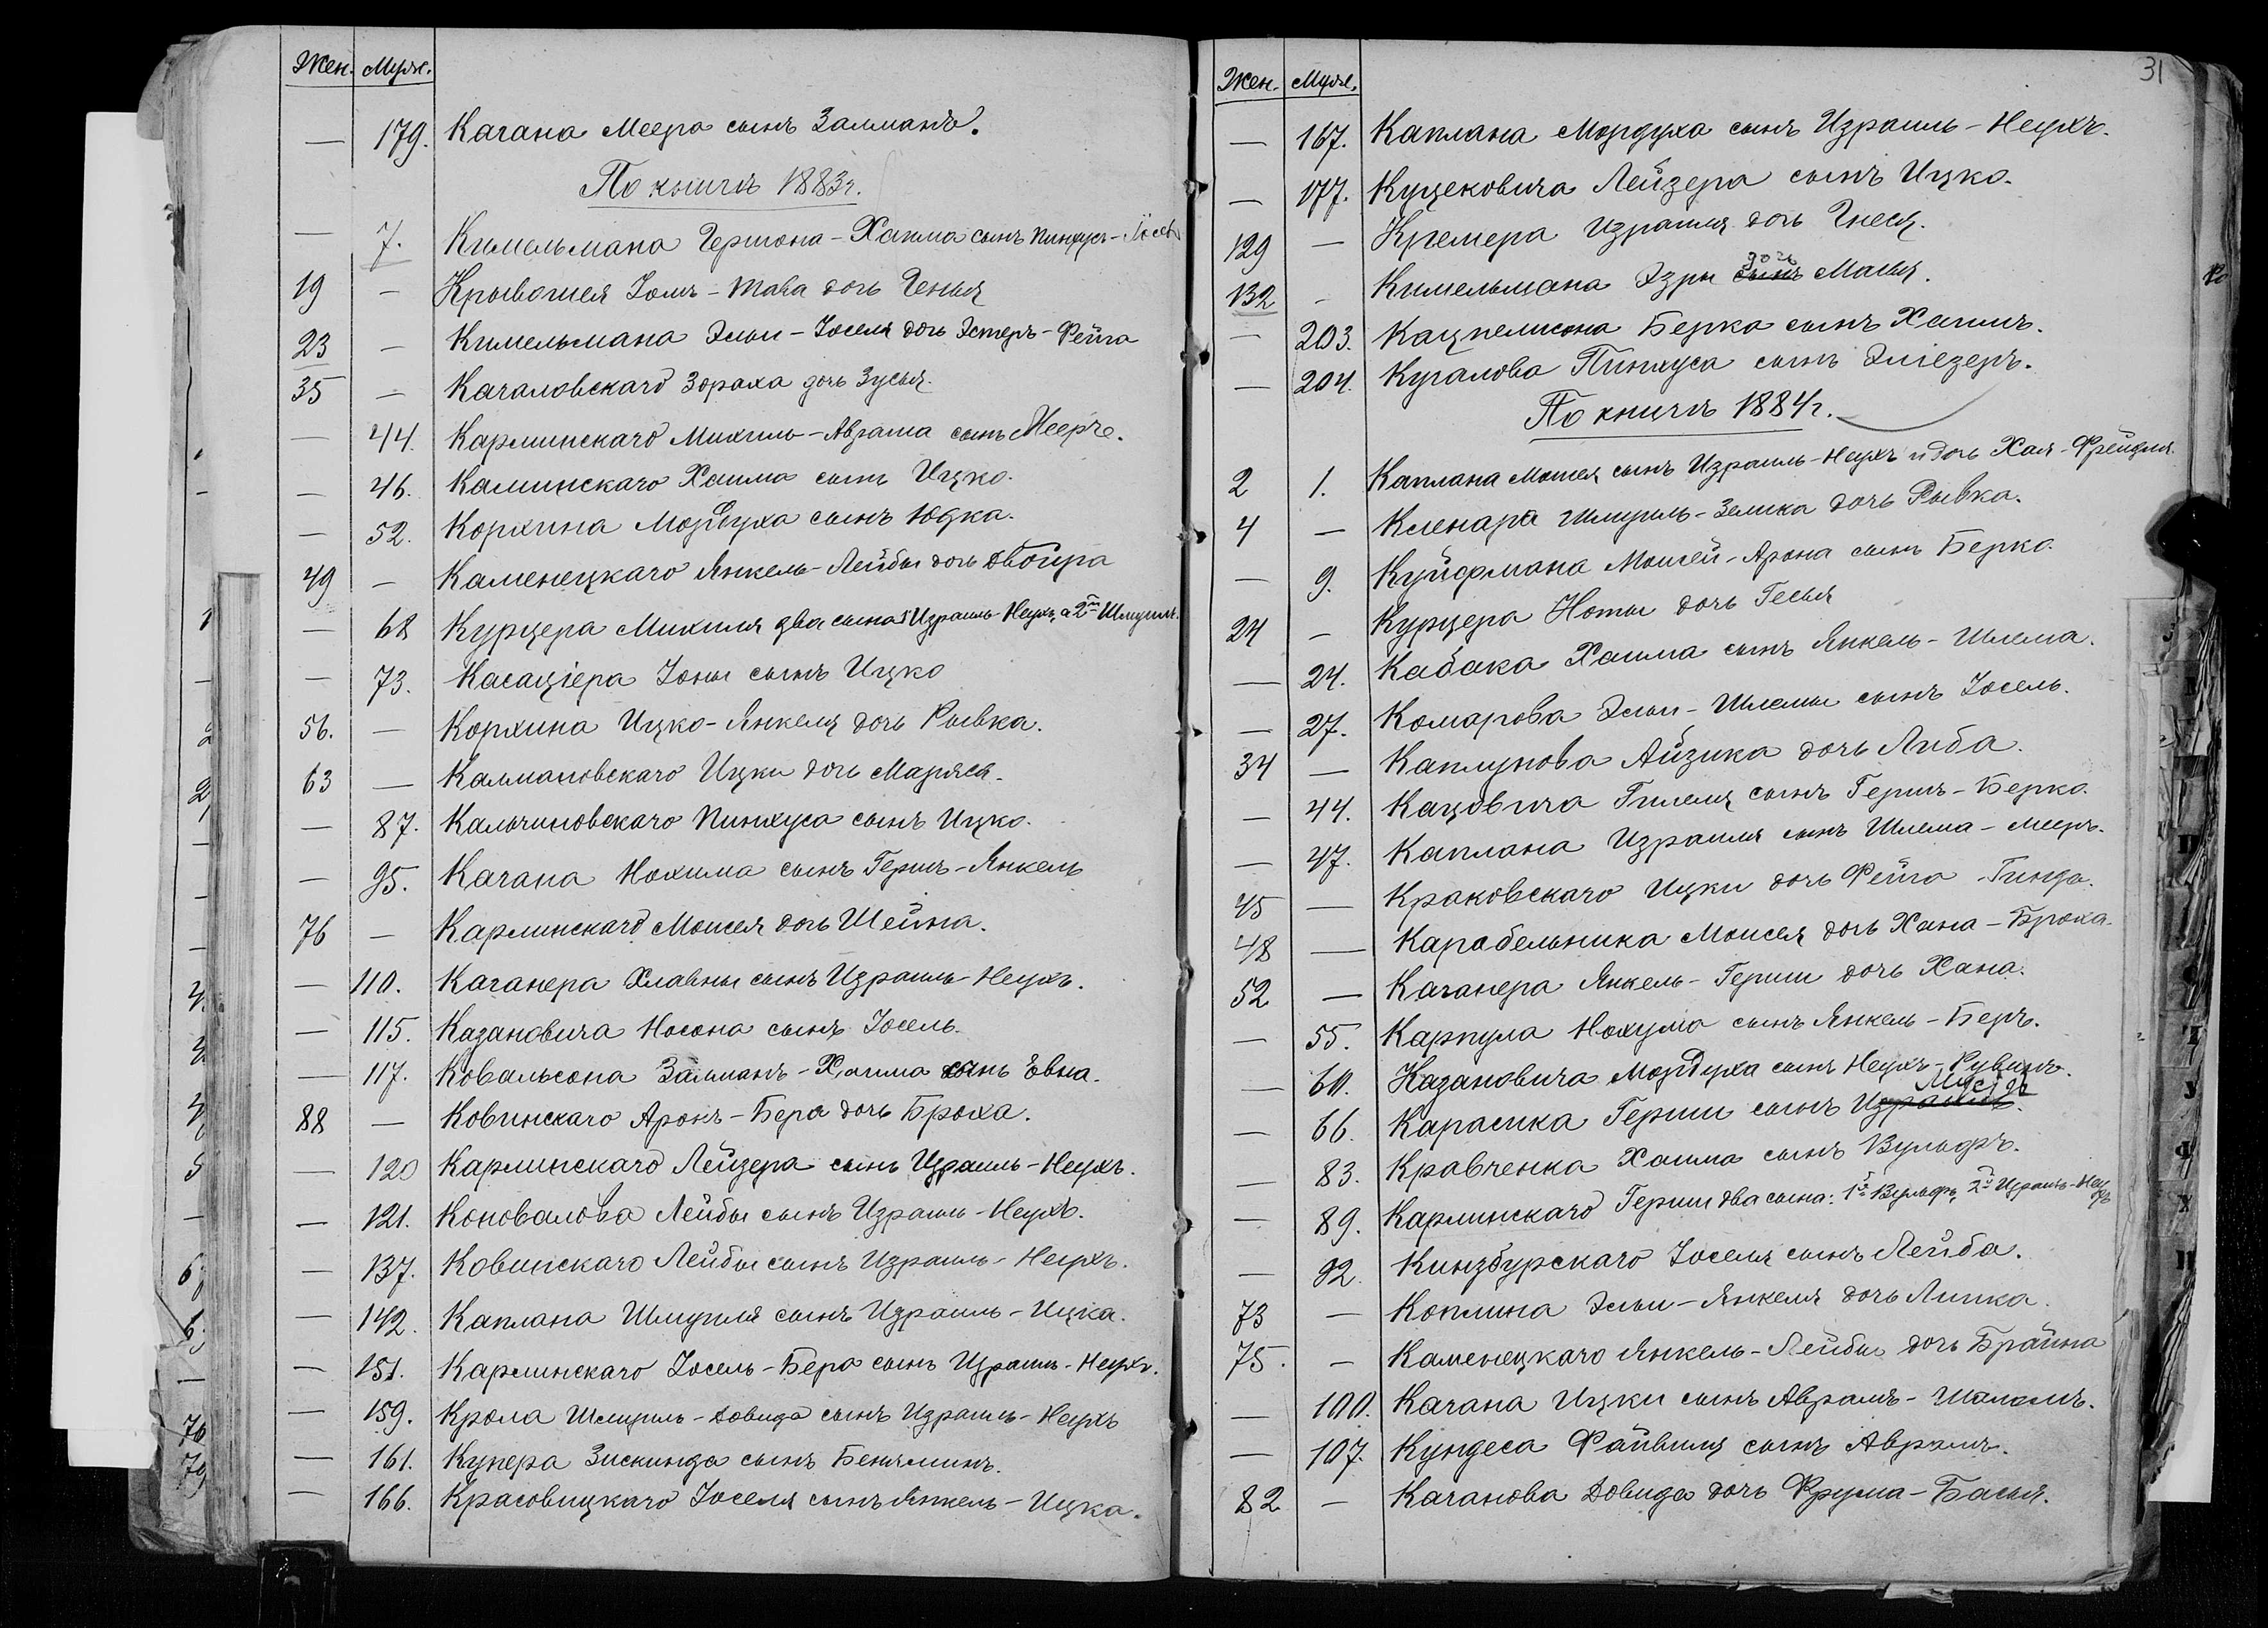 Жен. Муж.
— 179. Кагана Меера сынъ Залманъ.
По книгѣ 1883г.
— 7. Кимельмана Гершона-Хаима сынъ Пинхусъ-
19 — Кривошея Іомъ-Това дочь Генья
23 — Кимельмана Эльи-Іоселя дочь Эстеръ-Фейга
35 — Качаловскаго Зораха дочь Зусья.
— 44. Карлинскаго Михиль-Аврама сынъ
— 46. Каминскаго Хаима сынъ Ицко.
— 52. Корхина Мордуха сынъ Юдка.
49 — Каменецкаго Янкель-Лейбы дочь Двойра
— 68 Курцера Михиля два сына 1 Израиль-Неухъ, а 2й Шмуиль.
— 73. Касаціера Іоны сынъ Ицко
56. — Корхина Ицко-Янкеля дочь Рывка.
63 — Калмановскаго Ицки дочь Маряся.
— 87. Кальчиновскаго Пинхуса сынъ Ицко.
— 95. Кагана Нохима сынъ Гершъ-Янкель
76 — Карлинскаго Моисея дочь Шейна.
— 110. Каганера Хлавны сынъ Израиль-Неухъ.
— 115. Казановича Носона сынъ Іосель.
— 117. Ковальсона Залманъ-Хаима сынъ Евна.
88 — Ковинскаго Аронъ-Бера дочь Броха.
— 120 Карлинскаго Лейзера сынъ Израиль-Неухъ.
— 121. Коновалова Лейбы сынъ Израиль-Неухъ.
— 137. Ковинскаго Лейбы сынъ Израиль-Неухъ.
— 142. Каплана Шмуиля сынъ Израиль-Ицка.
— 151. Карлинскаго Іосель-Бера сынъ Израиль-Неухъ.
— 159. Крола Шмуиль-Довида сынъ Израиль-Неухъ
— 161. Купера Зискинда сынъ Беняминъ.
— 166. Красовицкаго Іоселя сынъ Янкель-Ицка.
31
Жен. Муж.
— 167. Каплана Мордуха сынъ Израиль-Неухъ.
— 177. Куцековича Лейзера сынъ Ицко.
129 — Кремера Израиля дочь Гнеся.
дочь
132 — Кимельмана Эзры сынъ Малья.
— 203. Кацнельсона Берка сынъ Хаимъ.
— 204. Кугалова Пинхуса сынъ Эліезеръ.
По книгѣ 1884г.
2 1. Каплана Мотея сынъ Израиль-Неухъ и дочь Хая-Фрейдля.
4 — Кленара Шмуиль-Зелика дочь Рывка.
— 9. Куйфмана Моисей-Арона сынъ Берко.
24 — Курцера Ноты дочь Гесья
— 24. Кабака Хаима сынъ Янкель-Шлема.
— 27. Комарова Эльи-Шлемы сынъ Іосель.
34 — Каплунова Айзика дочь Либа.
— 44. Кацовича Гилеля сынъ Гершъ-Берко.
— 47. Каплана Израиля сынъ Шлема-Мееръ.
45 — Краковскаго Ицки дочь Фейга-Гинда.
48 — Карабельника Моисея дочь Хана-Броха.
52 — Каганера Янкель-Герши дочь Хана.
— 55. Карпула Нохума сынъ Янкель-Беръ.
— 60. Казановича Мордуха сынъ Неухъ-Рувинъ.
— 66. Карасика Герши сынъ Израиль.
— 83. Кравченка Хаима сынъ Вульфъ.
— 89. Карлинскаго Герши два сына: 1й Вульфъ, 2й Израиль-Неухъ
— 92. Кинзбурскаго Іоселя сынъ Лейба.
73 — Коплина Эльи-Янкеля дочь Липка.
75. — Каменецкаго Янкель-Лейбы дочь Брайна
— 100. Кагана Ицки сынъ Аврамъ-Шоломъ.
— 107. Кундеса Файвиля сынъ Аврамъ.
82 — Каганова Довида дочь Фрума-Басья.